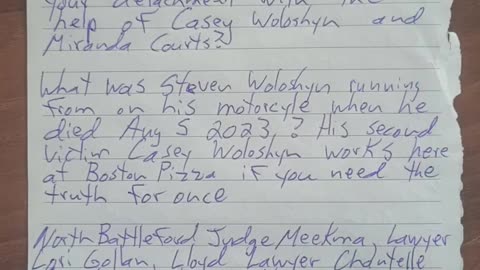 your detachment with the
help of Casey Woloshyn and
Miranda Courts?
What was Steven Woloshyn running
from on his motorcyle when he
died Aug 5 2023 ? His second
victim Casey Woloshyn works here
at Boston Pizza if you need the
truth for once
North Battleford Judge Meekma, Lawyer
Lori Gollan, Lloyd Lawyer Chantelle